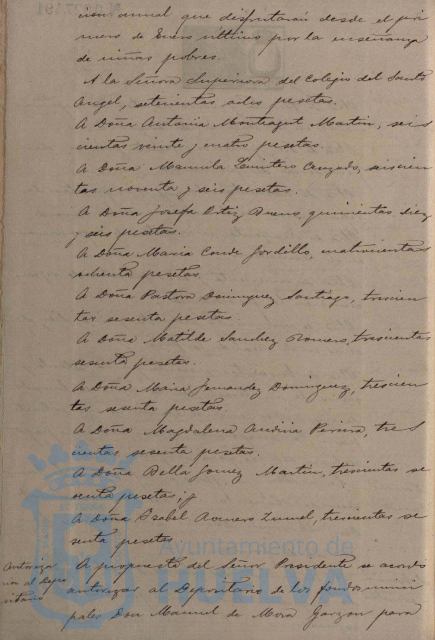 ción anual que disfrutarán desde el pri
mero de Enero último por la enseñanza
de niñas pobres.
A la Señora Superiora del Colegio del Santo
Angel, setecientas ocho pesetas.
A Doña Antonia Montagut Martin, seis
cientas veinte y cuatro pesetas.
A Doña Manuela Quintero Cruzado, seiscien
tas noventa y seis pesetas.
A Doña Josefa Ortiz Bueno, quinientas diez
y seis pesetas.
A Doña Maria Conde Gordillo, cuatrocientas
ochenta pesetas.
A Doña Pastora Dominguez Santiago, trescien
tas sesenta pesetas
A Doña Matilde Sanchez Romero, trescientas
sesenta pesetas.
A Doña Maria Fernandez Dominguez, trescien
tas sesenta pesetas
A Doña Magdalena Pereira, tres
cientas sesenta pesetas.
A Doña Bella Gomez Martin, trescientas se
senta pesetas; y
A Doña Isabel Romero, trescientas se
senta pesetas
Autoriza
ción al Depo
sitario
A propuesta del Señor Presidente se acordó
autorizar al Depositario de los fondos munici
pales Don Manuel de Mora Garzon para
Ayuntamiento de
HUELVA